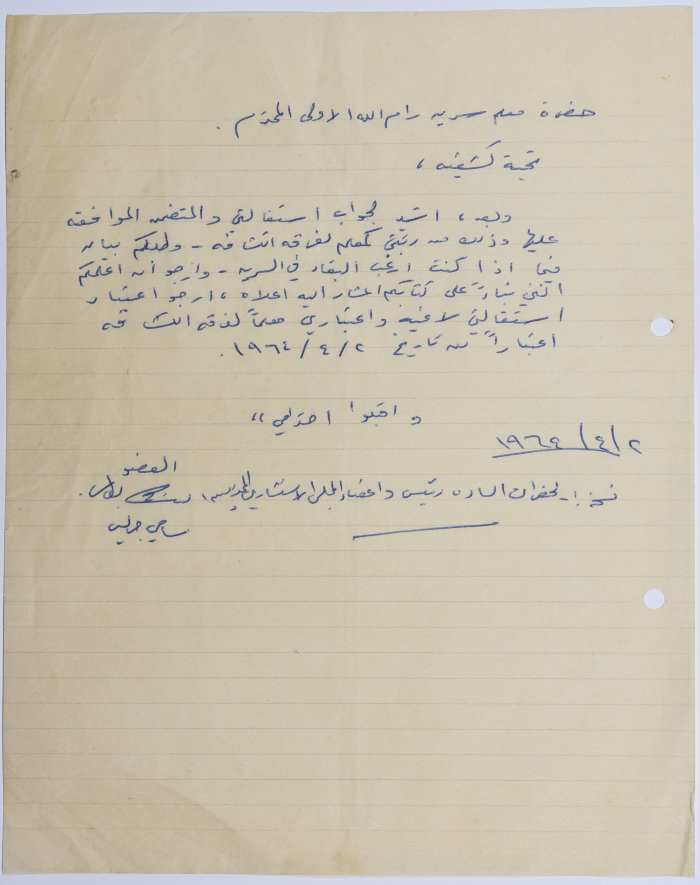 حضرة معلم سرية رام الله الاولى المحترم .
تحية كشفية ،
وبعد ، اشير لجواب استقالتي والمتضمن الموافقة
عليها وذلك من رتبتي كمعلم لفرقة الكشافة - وطلبكم بيان
فيما اذا كنت ارغب البقاء في السرية - وارجو ان اعلمكم
انني بناءً على كتابكم المشار اليه اعلاه ، ارجو اعتبار
استقالتي لاغية واعتباري معلماً لفرقة الكشافة
اعتباراً من تاريخ ٢ / ٤ / ١٩٦٤ .
واقبلوا احترامي ،،
٢ / ٤ / ١٩٦٤
العضو
نسخة :- لحضرات السادة رئيس واعضاء المجلس الاستشاري
سامي